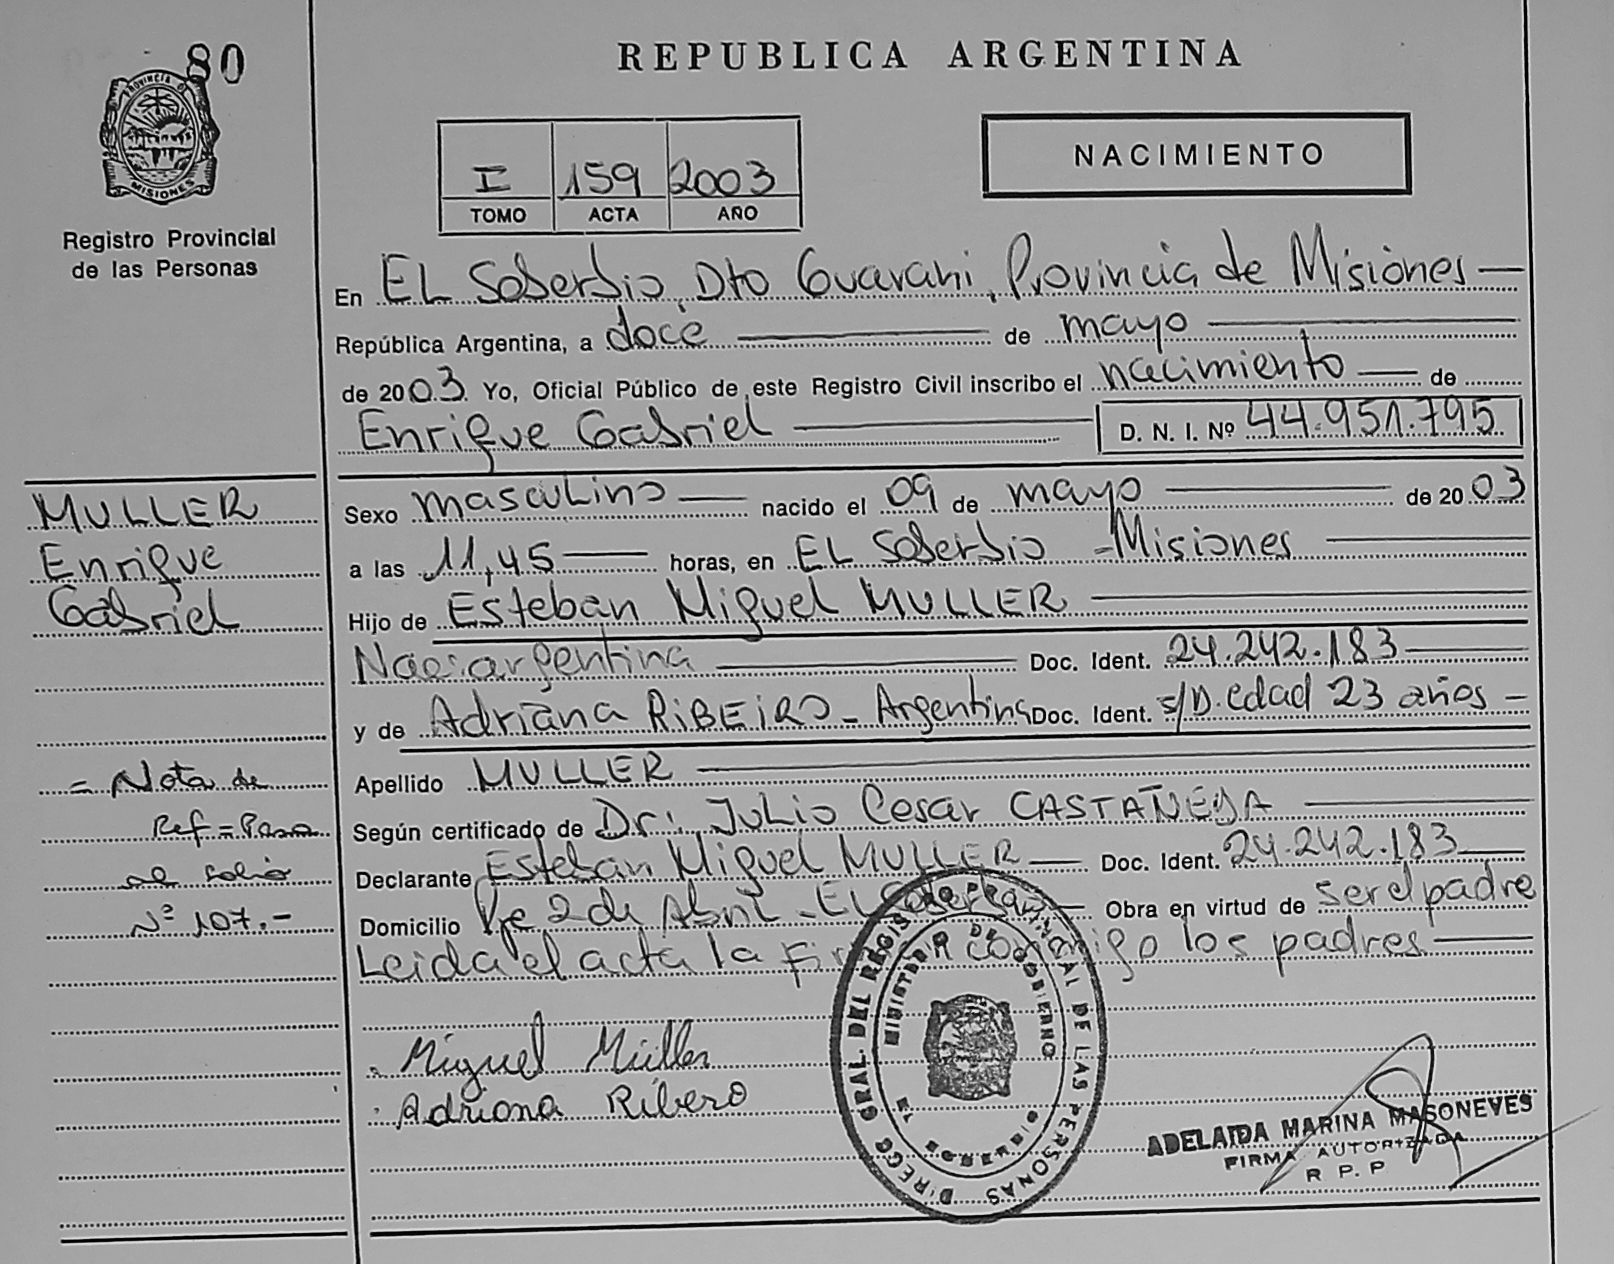 80
PROVINCIA DE
MISIONES
Registro Provincial
de las Personas
REPUBLICA ARGENTINA
NACIMIENTO
I 159 2003
TOMO ACTA AÑO
En EL Soberbio, Dto Guarani, Provincia de Misiones
República Argentina, a doce de mayo
de 2003. Yo, Oficial Público de este Registro Civil inscribo el nacimiento de
Enrique Gabriel D. N. I. Nº 44.951.795
MULLER
Enrique
Gabriel
Sexo masculino nacido el 09 de mayo de 2003
a las 11,45 horas, en EL Soberbio - Misiones
Hijo de Esteban Miguel MULLER
Nac: argentina Doc. Ident. 24.242.183
y de Adriana RIBEIRO - Argentina Doc. Ident. s/D. edad 23 años
Apellido MULLER
Según certificado de Dr: Julio Cesar CASTAÑEDA
Declarante Esteban Miguel MULLER Doc. Ident. 24.242.183
Domicilio Bº 2 de Abril - El Soberbio Obra en virtud de ser el padre
Leida el acta la firman conmigo los padres
= Nota de
Ref = Pasa
al folio
Nº 107.-
Miguel Müller
Adriana Ribero
DIREC. GRAL DEL REGIS PROVINCIAL DE LAS PERSONAS
MINISTERIO DE GOBIERNO
ADELAIDA MARINA MASONEVES
FIRMA AUTORIZADA
R P. P